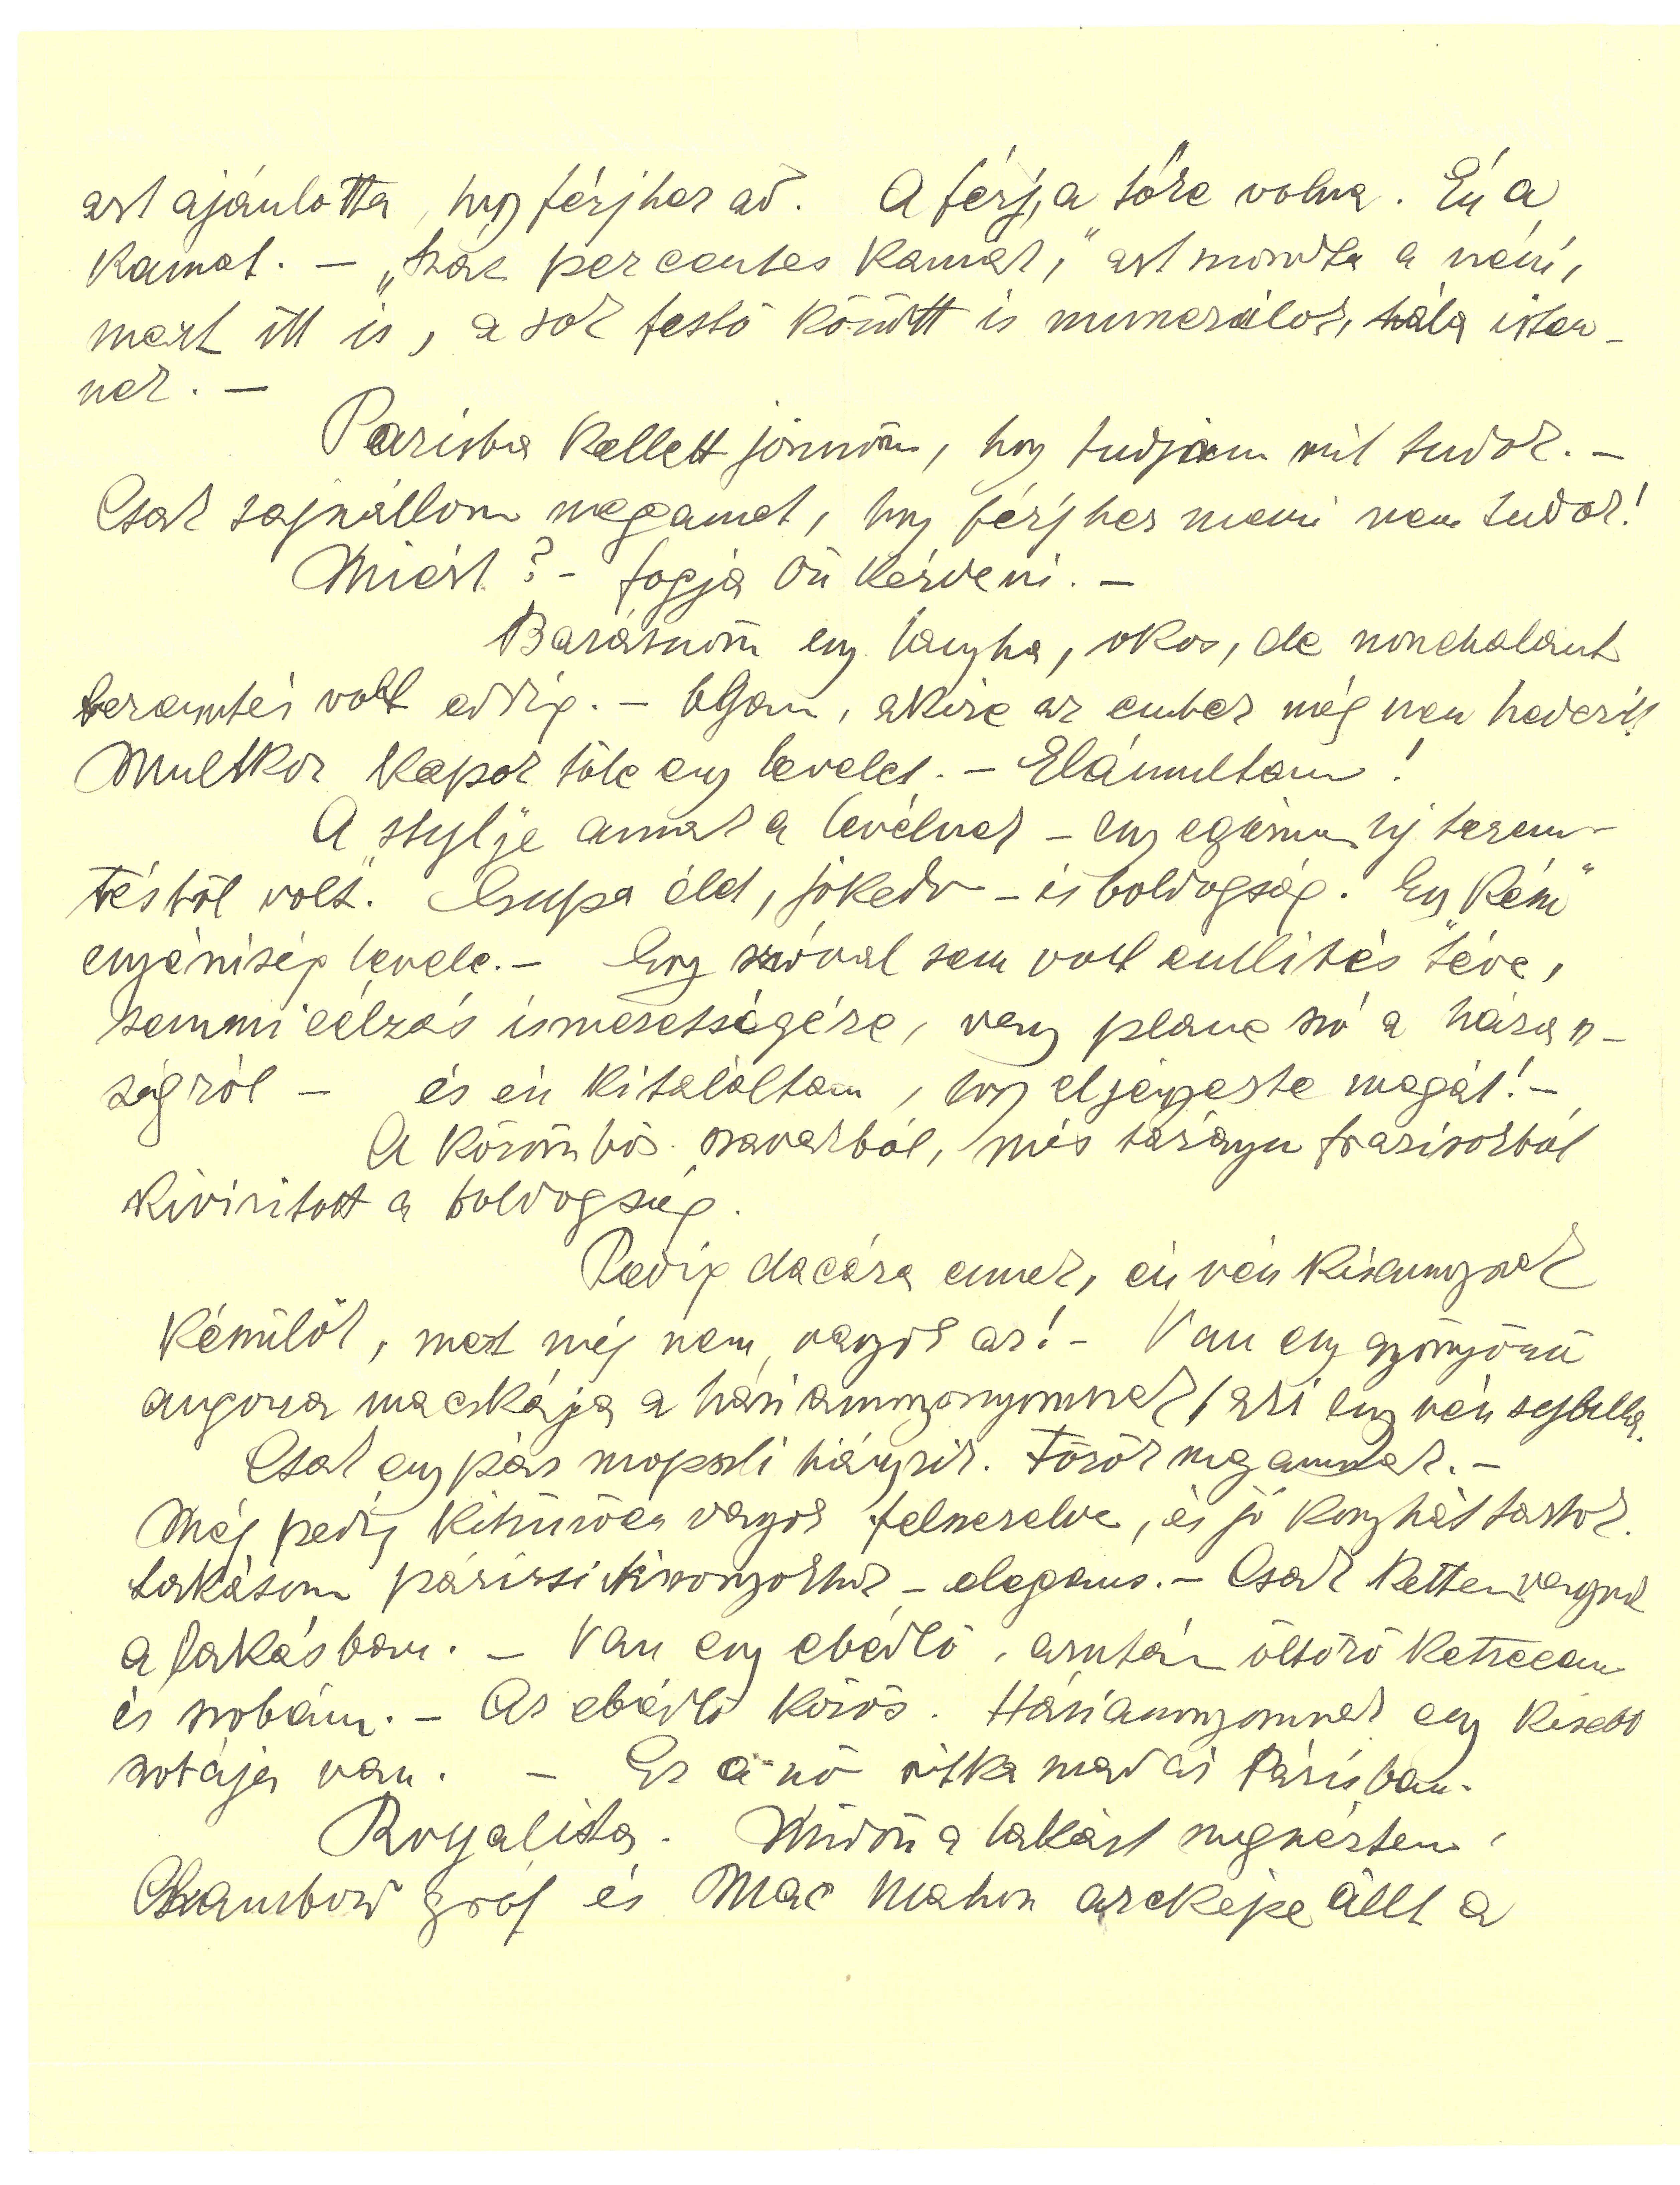 azt ajánlotta, hogy férjhez ad. A férj, a tőke volna. Én a
kamat. – „száz percentes kamat," azt mondta a néni,
mert itt is, a sok festő között is numerálok, hála isten-
nek. –
Parisba kellett jönnöm, hogy tudjam mit tudok. –
Csak sajnállom magamat, hogy férjhez menni nem tudok!
Miért? – fogja Ön kérdeni. –
Barátnőm egy lanyha, okos, de nonchalant
teremtés volt eddig. – Olyan, akire az ember még nem hederít!
Multkor kapok tőle egy levelet. – Elámultam!
A „stylje annak a levélnek – egy egészen új terem-
téstől volt". Csupa élet, jókedv – és boldogság. Egy „kém"
egyéniség levele. – Egy szóval sem volt említés téve,
semmi célzás ismeretségére, vagy plane szó a házas-
ságról – és én kitaláltam, hogy eljegyezte magát! –
A köröm szavakból, frazisokból
kivirított a boldogság.
Pedig dacára ennek, én vén kisasszonynak
készülök, mert még nem vagyok az! – Van egy gyönyörű
angora macskája a háziasszonyomnak, aki egy vén sybilla.
Csak egy pár mopszli hiányzik. Főzök magamnak. –
Még pedig kitünően vagyok felszerelve, és jó konyhát tartok.
Lakásom párizsi viszonyokhoz – elegans. – Csak ketten vagyunk
a lakásban. – Van egy ebédlő, azután öltöző ketrecem
és szobám. – Az ebédlő közös. Háziasszonyomnak egy kisebb
szobája van. – Ez a nő ritka madár Párisban.
Royalista. Midőn a lakást megnéztem,
Chambord gróf és Mac Mahon arcképe állt a